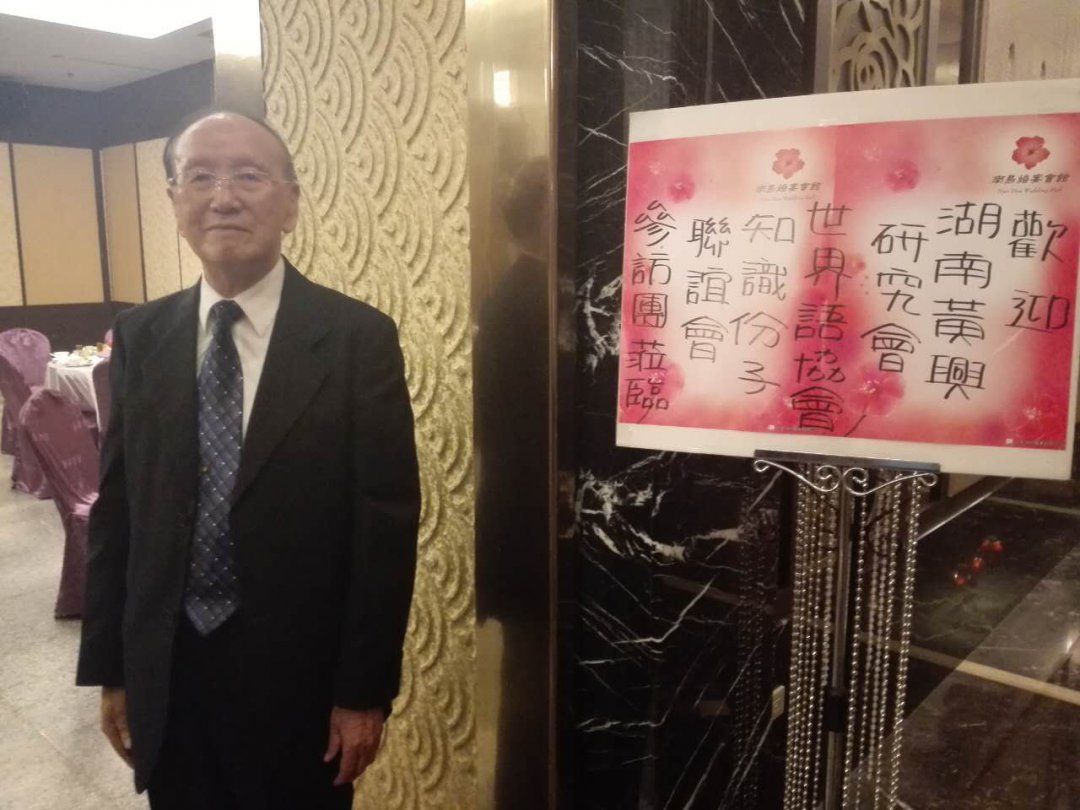 歡迎
湖南黃興
研究會
世界語協會
知識份子
聯誼會
參訪團蒞臨
南島婚宴會館
南島婚宴會館